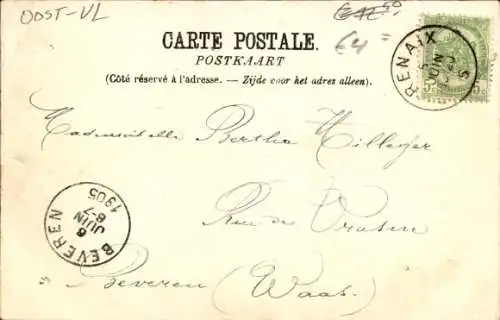 OOST-VL
CARTE POSTALE.
€4
POSTKAART
(Côté réservé à l'adresse. — Zijde voor het adres alleen).
RENAIX
5
JUIN
5
5c 5c
Mademoiselle Bertha
Rue de
Beveren (Waas)
BEVEREN
6
JUIN
6-7
1905